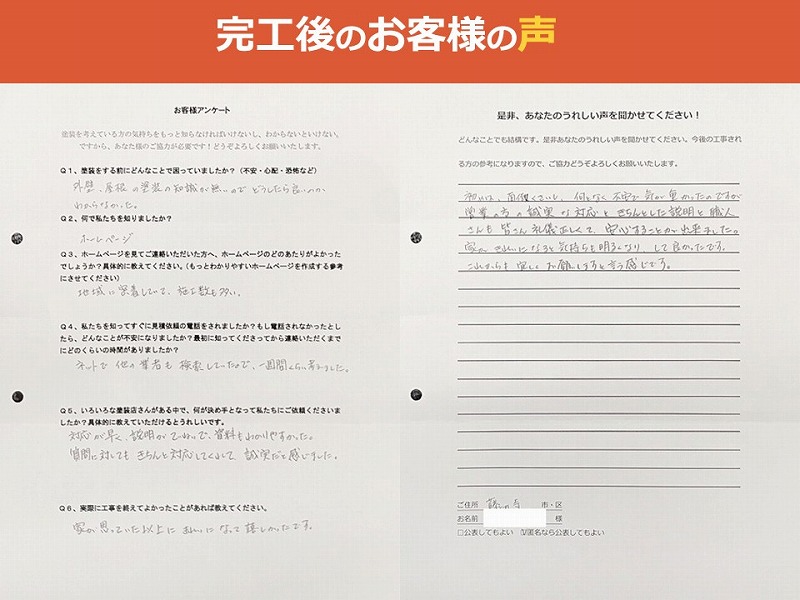 完工後のお客様の声
お客様アンケート
塗装を考えている方の気持ちをもっと知らなければいけないし、わからないといけない。
ですから、あなた様のご協力が必要です！どうぞよろしくお願いいたします。
Q１、塗装をする前にどんなことで困っていましたか？（不安・心配・恐怖など）
外壁、屋根の塗装の知識が無いので どうしたら良いのか
わからなかった。
Q２、何で私たちを知りましたか？
ホームページ
Q３、ホームページを見てご連絡いただいた方へ、ホームページのどのあたりがよかった
でしょうか？具体的に教えてください。（もっとわかりやすいホームページを作成する参考
にさせてください）
地域に密着していて、施工数も多い。
Q４、私たちを知ってすぐに見積依頼の電話をされましたか？もし電話されなかったとし
たら、どんなことが不安になりましたか？最初に知ってくださってから連絡いただくまで
にどのくらいの時間がありましたか？
ネットで 他の業者も 検索していたので、一週間くらい考えました。
Q５、いろいろな塗装店さんがある中で、何が決め手となって私たちにご依頼くださいま
したか？具体的に教えていただけるとうれしいです。
対応が早く、説明がていねいで、資料もわかりやすかった。
質問に対しても きちんと対応してくれて 誠実だと感じました。
Q６、実際に工事を終えてよかったことがあれば教えてください。
家が思っていた以上に きれいに なって 嬉しかったです。
是非、あなたのうれしい声を聞かせてください！
どんなことでも結構です。是非あなたのうれしい声を聞かせてください。今後の工事され
る方の参考になりますので、ご協力どうぞよろしくお願いいたします。
初めは、面倒くさいし、何となく不安で気が重かったのですが
営業の方の誠実な対応ときちんとした説明と職人
さんも皆さん礼儀正しくて、安心することが出来ました。
家が きれいになると気持ちも明るくなり して良かったです。
これからも 宜しく お願いしますと言う感じです。
ご住所 藤沢 市・区
お名前 様
□公表してもよい ☑匿名なら公表してもよい